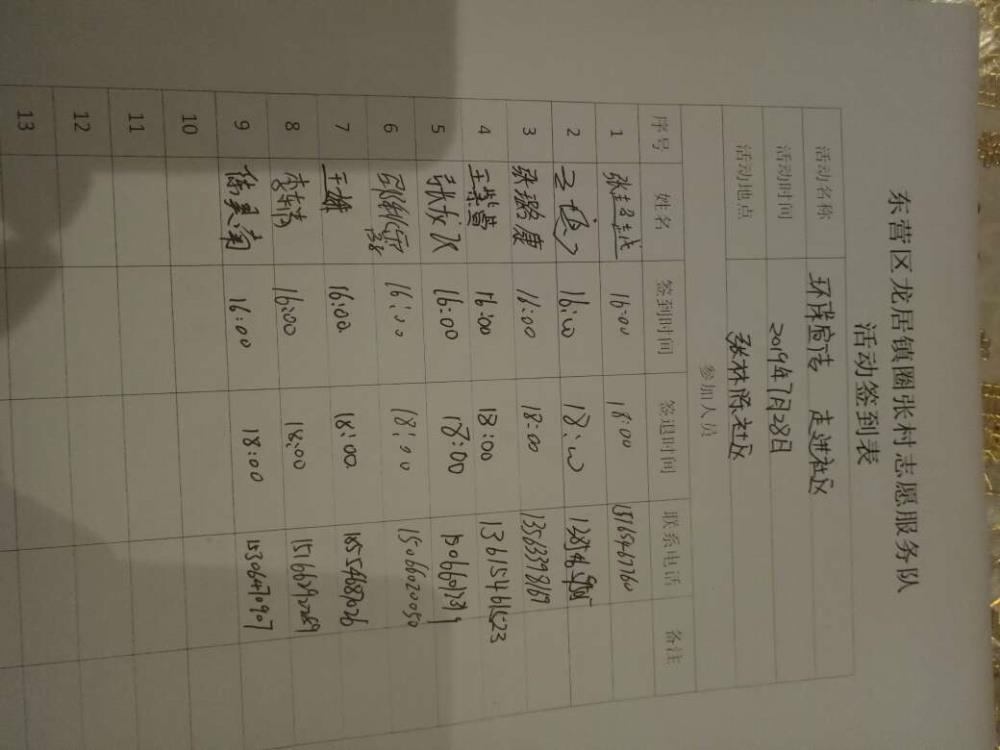 东营区龙居镇圈张村志愿服务队
活动签到表
活动名称 环保宣传 走进社区
活动时间 2019年7月28日
活动地点 张林陈社区
参加人员
序号 姓名 签到时间 签退时间 联系电话 备注
1 张 16:00 18:00
2 16:00 18:00
3 张璐康 16:00 18:00 13563398169
4 王紫萱 16:00 18:00 13615461523
5 张 16:00 18:00
6 16:00 18:00 15066020050
7 王雄 16:00 18:00 18554687026
8 李 16:00 18:00
9 徐昊南 16:00 18:00 15306470907
10
11
12
13